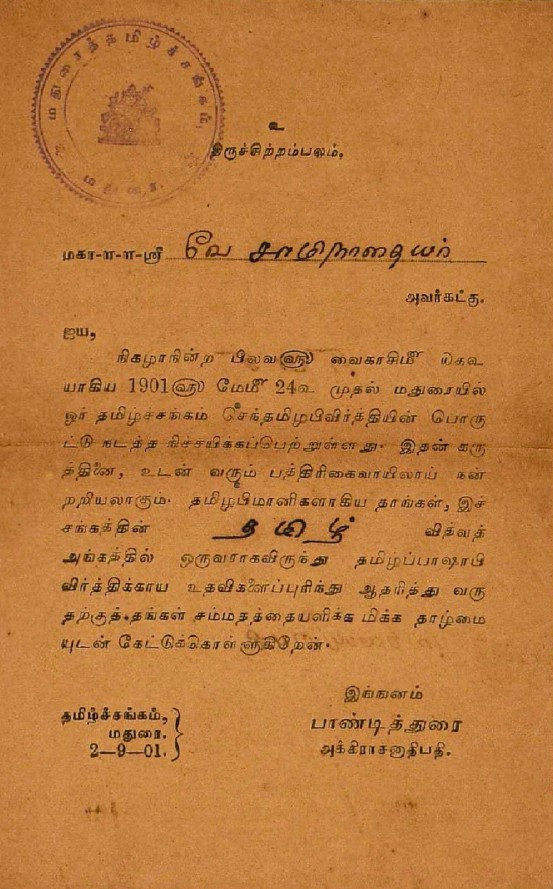 மதுரைத்தமிழ்ச்சங்கம்,
மதுரை.
உ
திருச்சிற்றம்பலம்,
மகா-ள-ள-ஸ்ரீ வே சாமிநாதையர்
அவர்கட்கு.
ஐய,
நிகழாநின்ற பிலவ௵ வைகாசி௴
யாகிய 1901௵ மே௴ 24உ முதல் மதுரையில்
ஓர் தமிழ்ச்சங்கம் செந்தமிழபிவிர்த்தியின் பொரு
ட்டு நடத்த நிச்சயிக்கப்பெற்றுள்ளது. இதன் கரு
த்தினை, உடன் வரும் பத்திரிகைவாயிலாய் நன்
றறியலாகும். தமிழபிமானிகளாகிய தாங்கள், இச்
சங்கத்தின் தமிழ் வித்வத்
அங்கத்தில் ஒருவராகவிருந்து தமிழ்ப்பாஷாபி
விர்த்திக்காய உதவிகளைப்புரிந்து ஆதரித்து வரு
தற்குத் தங்கள் சம்மதத்தையளிக்க மிக்க தாழ்மை
யுடன் கேட்டுக்கொள்ளுகிறேன்.
இங்ஙனம்
தமிழ்ச்சங்கம்,
மதுரை.
2—9—01.
பாண்டித்துரை
அக்கிராசனாதிபதி.